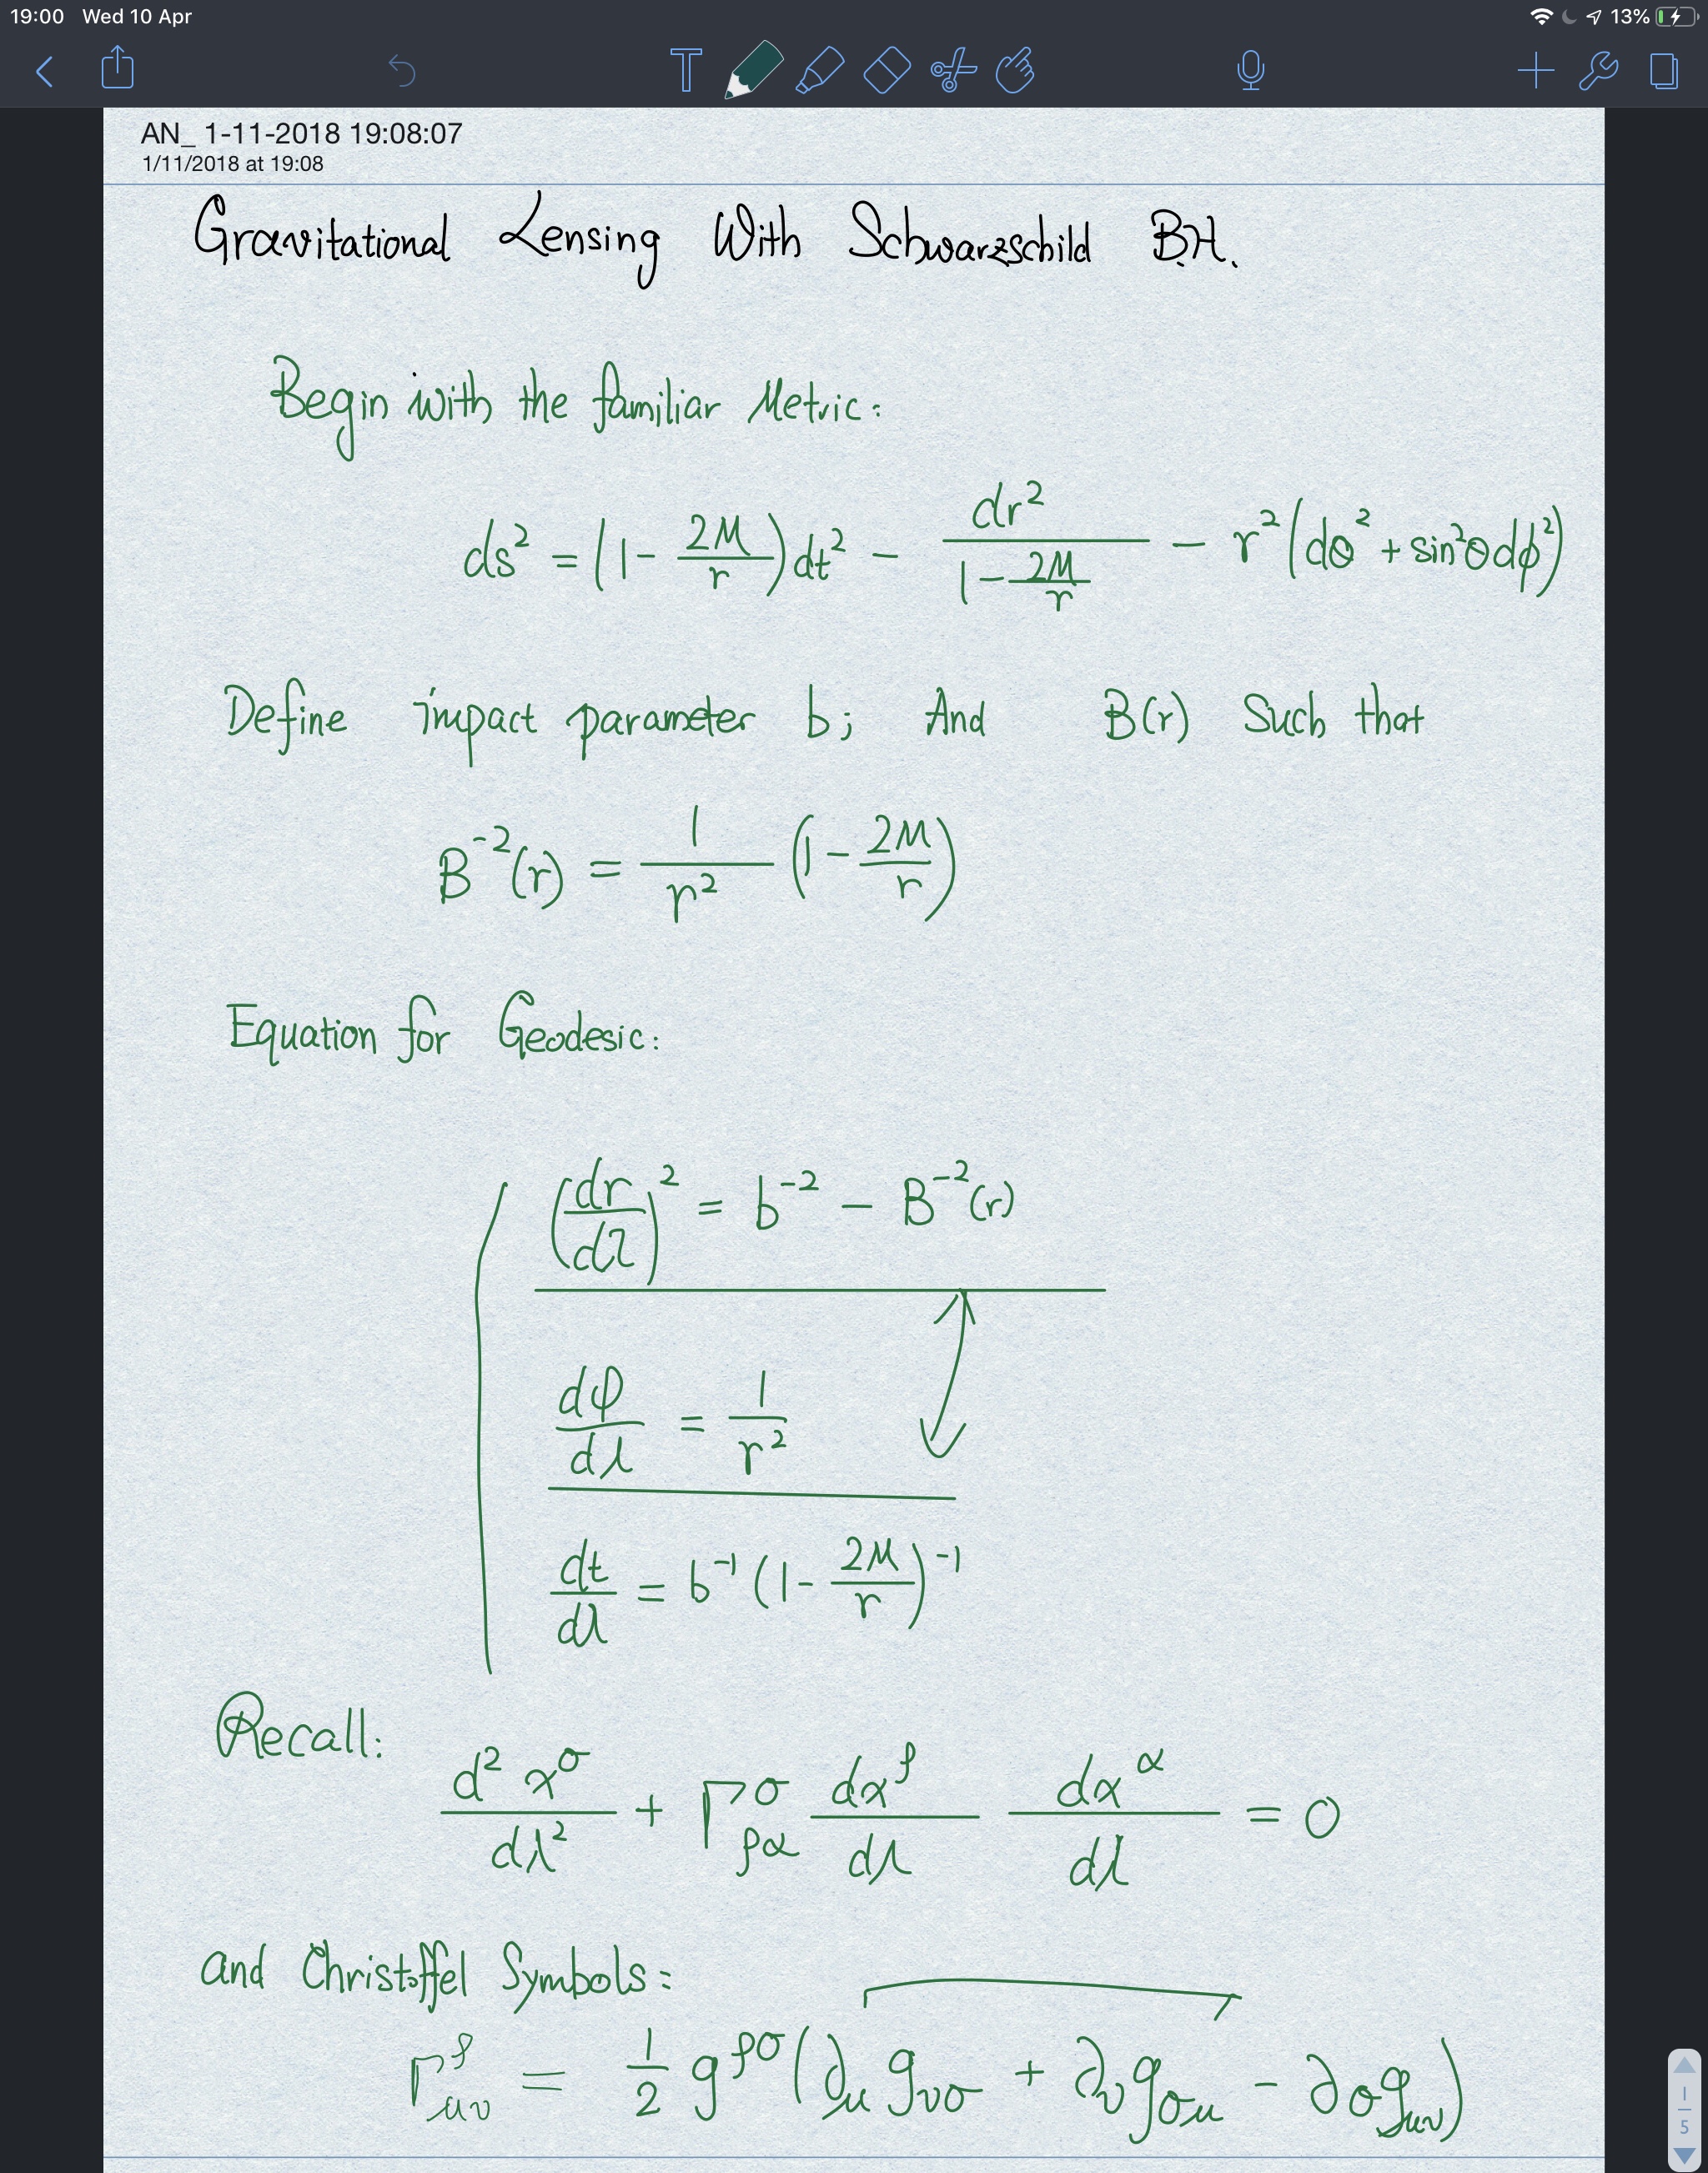 19:00 Wed 10 Apr 13%
T
AN_ 1-11-2018 19:08:07
1/11/2018 at 19:08
Gravitational Lensing With Schwarzschild B.H.
Begin with the familiar Metric:
ds² = (1 - 2M/r) dt² - dr²/(1 - 2M/r) - r²(dθ² + sin²θ dϕ²)
Define impact parameter b; And B(r) Such that
B⁻²(r) = 1/r² (1 - 2M/r)
Equation for Geodesic:
(dr/dλ)² = b⁻² - B⁻²(r)
dφ/dλ = 1/r²
dt/dλ = b⁻¹ (1 - 2M/r)⁻¹
Recall:
d²x^σ/dλ² + Γ^σ_ρα dx^ρ/dλ dx^α/dλ = 0
and Christoffel Symbols:
Γ^ρ_μν = 1/2 g^ρσ (∂_μ g_νσ + ∂_ν g_σμ - ∂_σ g_μν)
1
5